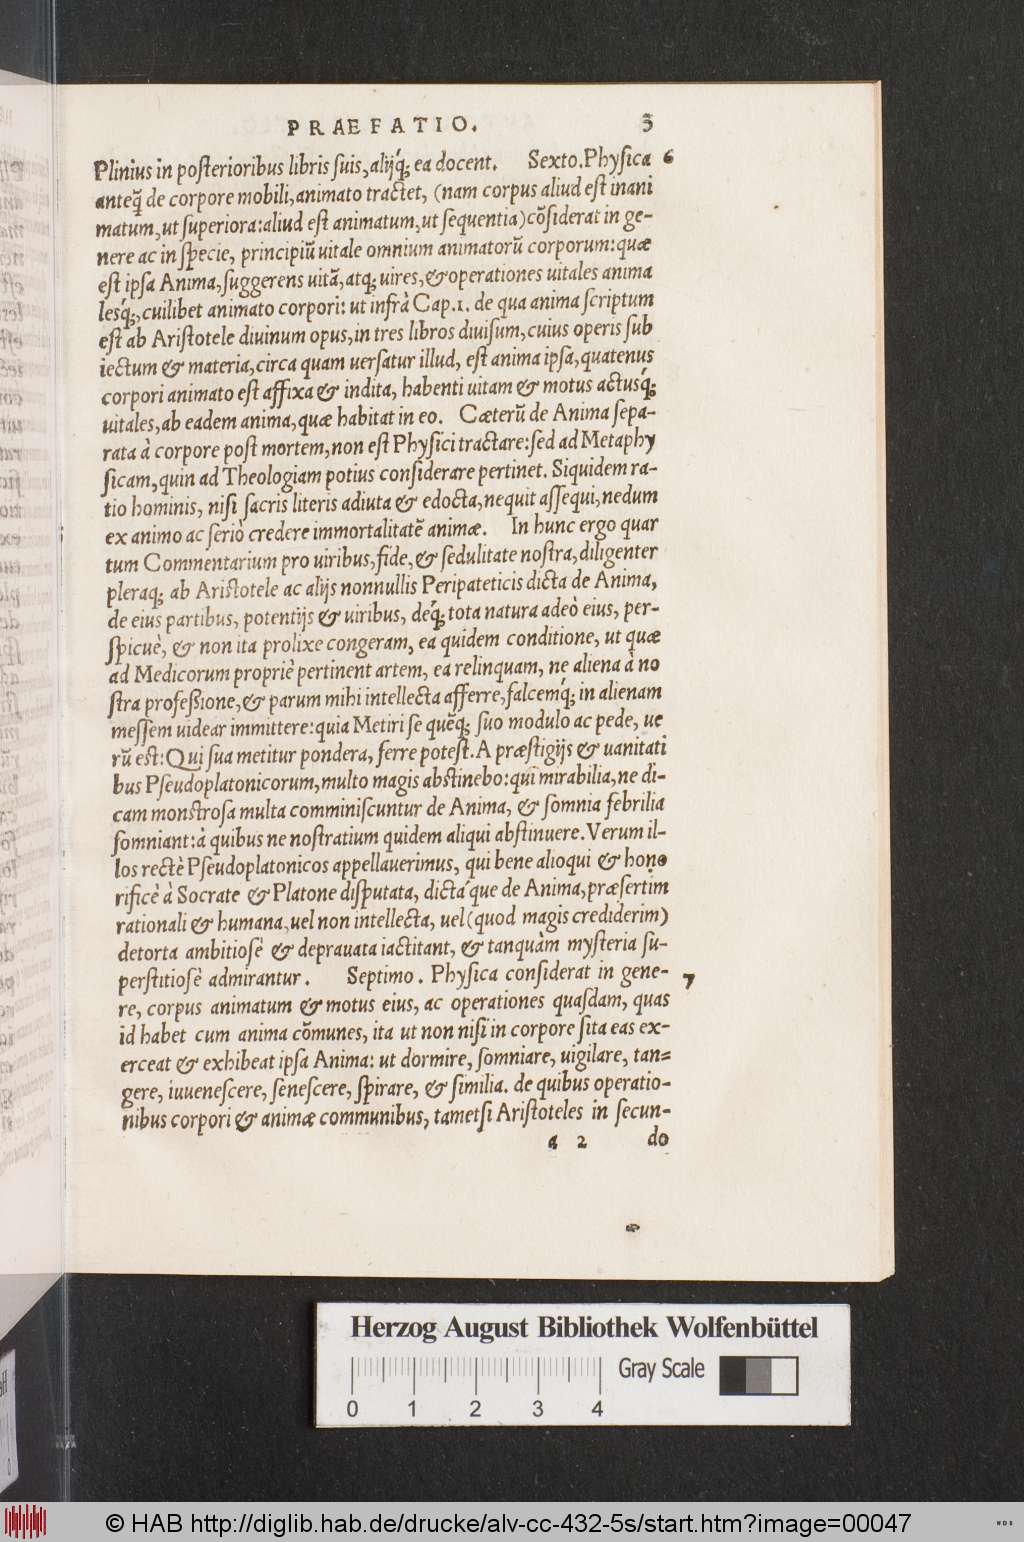 PRAEFATIO. 3
Plinius in posterioribus libris suis, alijq́; ea docent. Sexto. Physica 6
anteq̃ de corpore mobili, animato tractet, (nam corpus aliud est inani
matum, ut superiora: aliud est animatum, ut sequentia) cõsiderat in ge-
nere ac in specie, principiũ uitale omnium animatorũ corporum: quæ
est ipsa Anima, suggerens uitã, atq; uires, & operationes uitales anima
lesq́;, cuilibet animato corpori: ut infrà Cap. 1. de qua anima scriptum
est ab Aristotele diuinum opus, in tres libros diuisum, cuius operis sub
iectum & materia, circa quam uersatur illud, est anima ipsa, quatenus
corpori animato est affixa & indita, habenti uitam & motus actusq́;
uitales, ab eadem anima, quæ habitat in eo. Cæterũ de Anima sepa-
rata à corpore post mortem, non est Physici tractare: sed ad Metaphy
sicam, quin ad Theologiam potius considerare pertinet. Siquidem ra-
tio hominis, nisi sacris literis adiuta & edocta, nequit assequi, nedum
ex animo ac seriò credere immortalitatẽ animæ. In hunc ergo quar
tum Commentarium pro uiribus, fide, & sedulitate nostra, diligenter
pleraq; ab Aristotele ac alijs nonnullis Peripateticis dicta de Anima,
de eius partibus, potentijs & uiribus, deq́; tota natura adeò eius, per-
spicuè, & non ita prolixe congeram, ea quidem conditione, ut quæ
ad Medicorum propriè pertinent artem, ea relinquam, ne aliena à no
stra professione, & parum mihi intellecta afferre, falcemq́; in alienam
messem uidear immittere: quia Metiri se quẽq; suo modulo ac pede, ue
rũ est: Qui sua metitur pondera, ferre potest. A præstigijs & uanitati
bus Pseudoplatonicorum, multo magis abstinebo: qui mirabilia, ne di-
cam monstrosa multa comminiscuntur de Anima, & somnia febrilia
somniant: à quibus ne nostratium quidem aliqui abstinuere. Verum il-
los rectè Pseudoplatonicos appellauerimus, qui bene alioqui & hono
rificè à Socrate & Platone disputata, dictáque de Anima, præsertim
rationali & humana, uel non intellecta, uel (quod magis crediderim)
detorta ambitiosè & deprauata iactitant, & tanquàm mysteria su-
perstitiosè admirantur. Septimo. Physica considerat in gene- 7
re, corpus animatum & motus eius, ac operationes quasdam, quas
id habet cum anima cõmunes, ita ut non nisi in corpore sita eas ex-
erceat & exhibeat ipsa Anima: ut dormire, somniare, uigilare, tan-
gere, iuuenescere, senescere, spirare, & similia. de quibus operatio-
nibus corpori & animæ communibus, tametsi Aristoteles in secun-
a 2 do
Herzog August Bibliothek Wolfenbüttel
Gray Scale
0 1 2 3 4
© HAB http://diglib.hab.de/drucke/alv-cc-432-5s/start.htm?image=00047